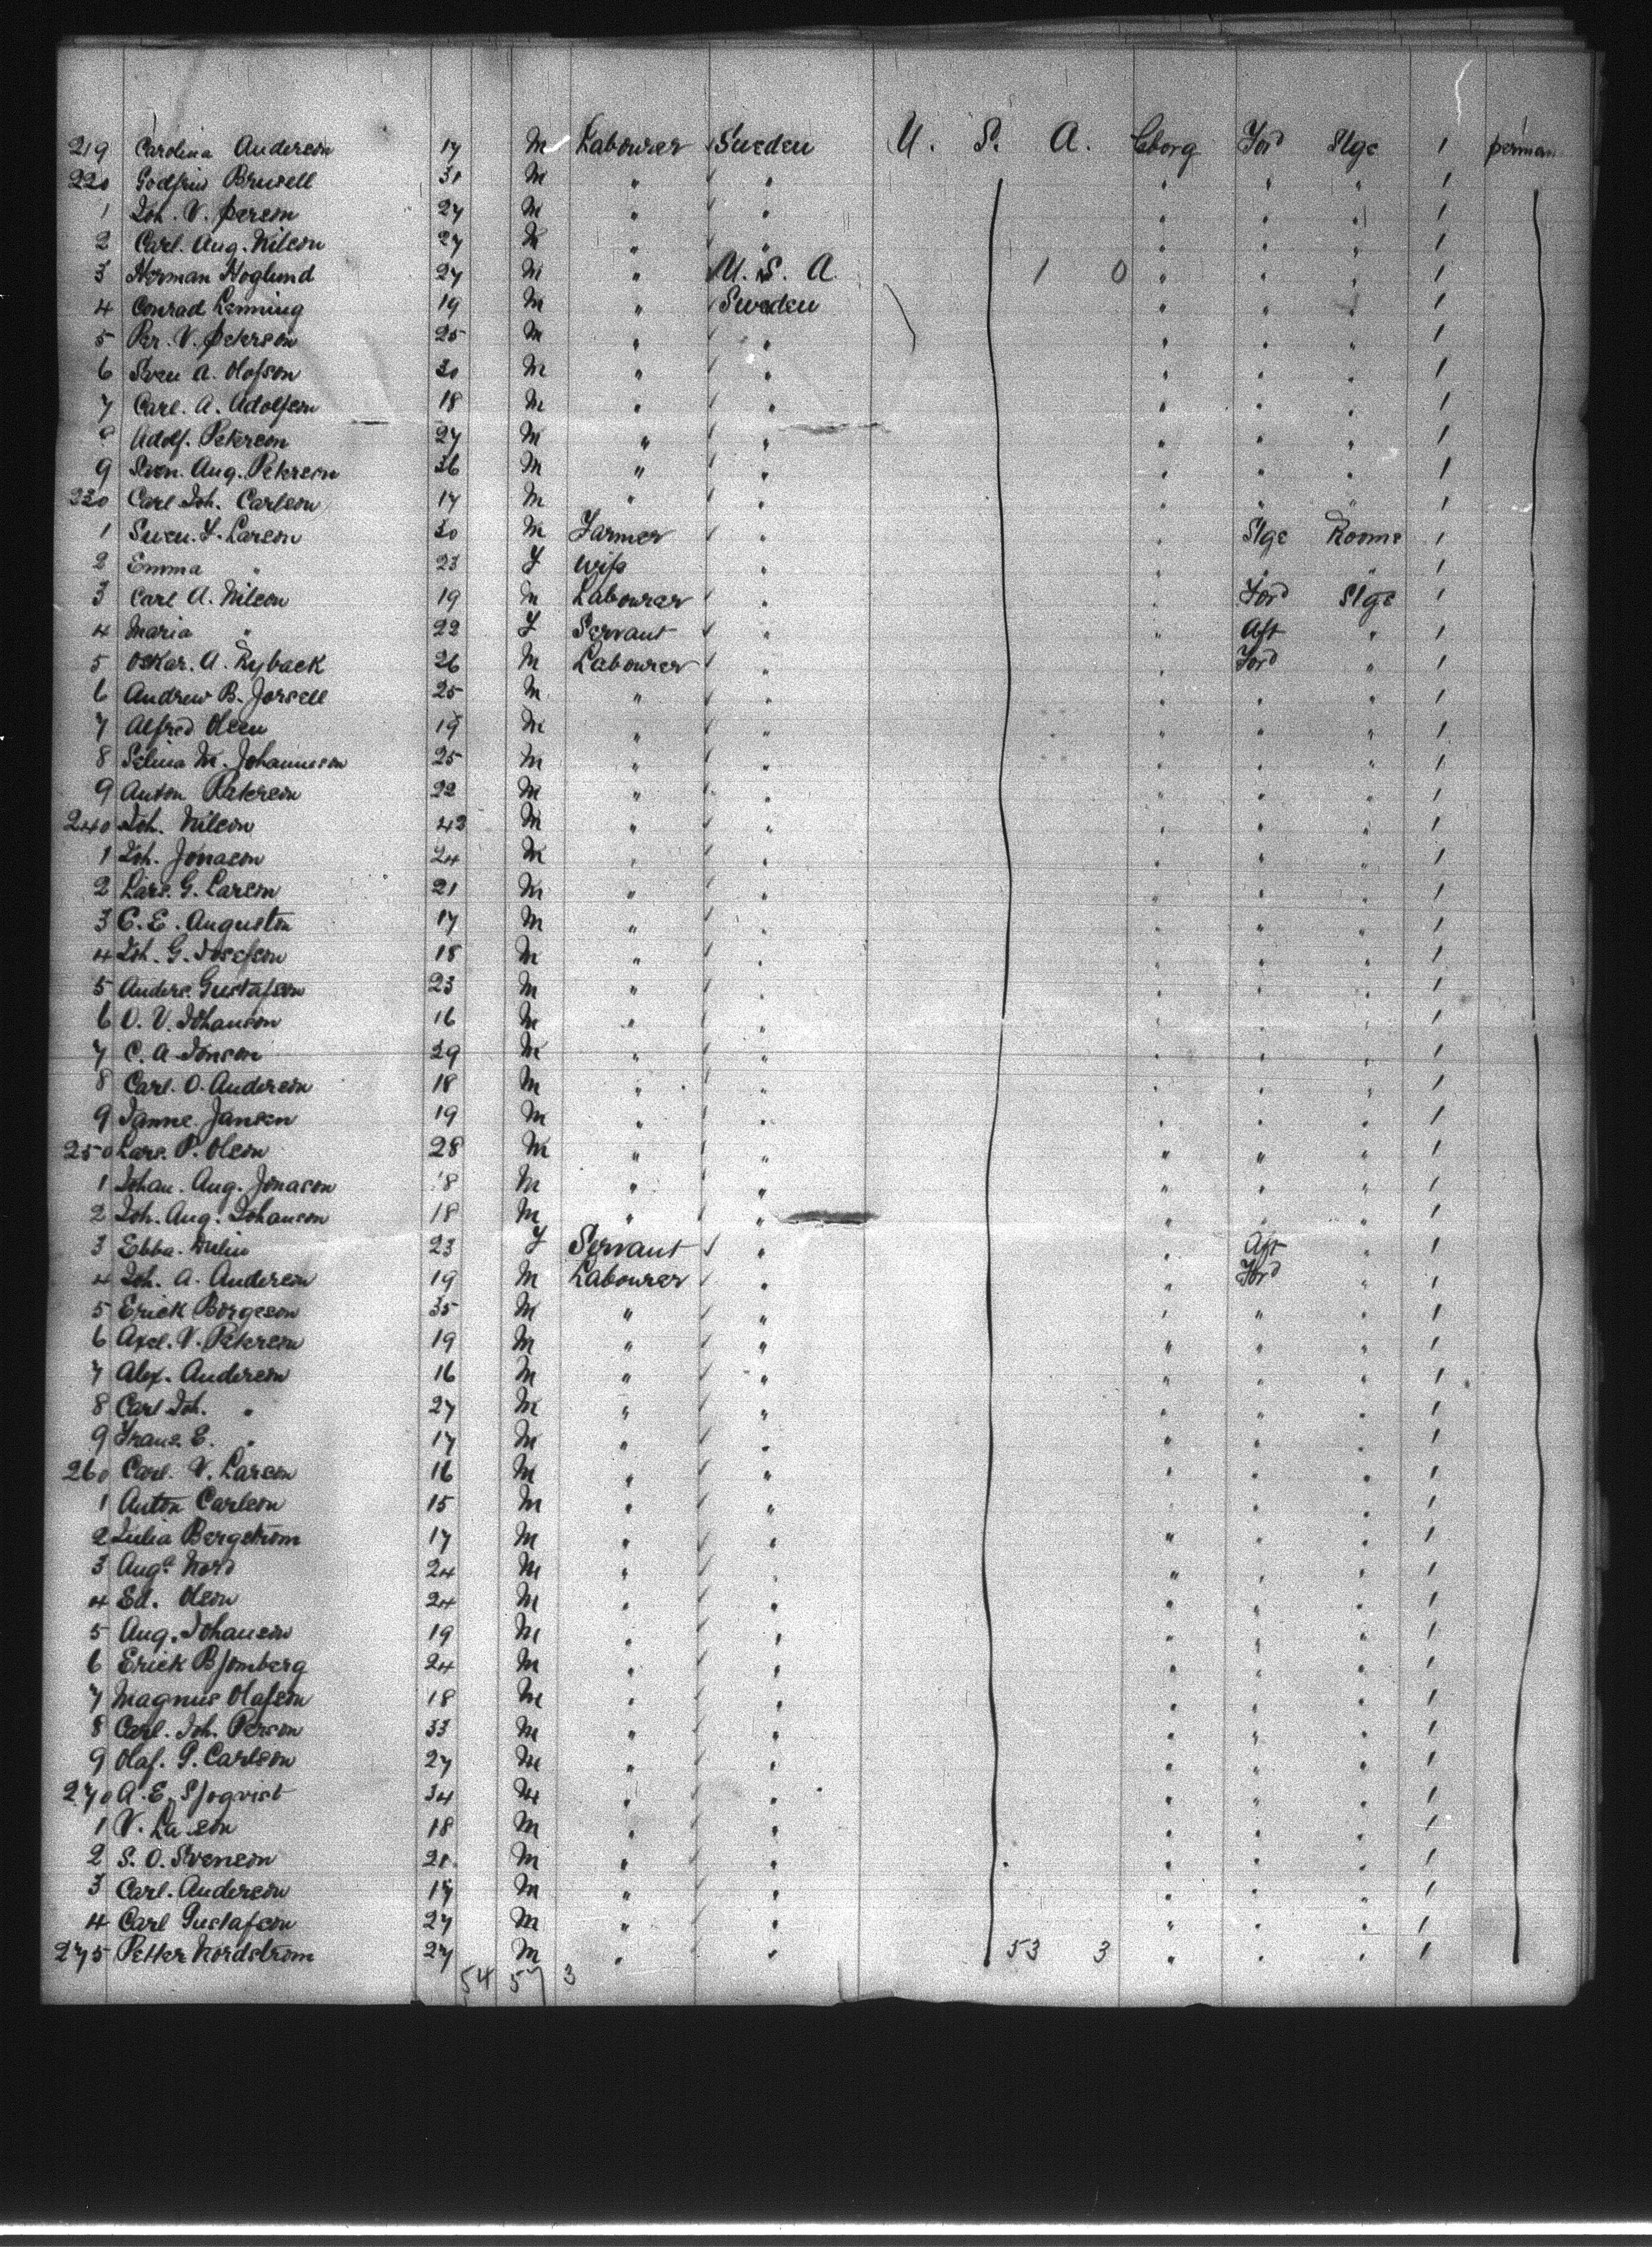 219 Carolina Anderson 17 M Labourer Sweden U. S. A. Gborg Ford Stge 1 perman
220 Godfrid Brusell 31 M " " " " " 1
1 Joh. V. Person 27 M " " " " " 1
2 Carl. Aug. Nilson 27 M " " " " " 1
3 Herman Hoglund 27 M " U. S. A. 1 0 " " " 1
4 Conrad Lenning 19 M " Sweden " " " 1
5 Per. V. Peterson 25 M " " " " " 1
6 Sven A. Olofson 30 M " " " " " 1
7 Carl. A. Adolfson 18 M " " " " " 1
8 Adolf. Peterson 27 M " " " " " 1
9 Sven. Aug. Peterson 36 M " " " " " 1
230 Carl Joh. Carlson 17 M " " " " " 1
1 Sven. F. Larson 30 M Farmer " " Stge Rooms 1
2 Emma " 23 F Wife " " " " 1
3 Carl A. Nilson 19 M Labourer " " Ford Stge 1
4 Maria " 22 F Servant " " Aft " 1
5 Oskar. A. Ryback 26 M Labourer " " Ford " 1
6 Andrew B. Forsell 25 M " " " " " 1
7 Alfred Olsen 19 M " " " " " 1
8 Selma M. Johanneson 25 M " " " " " 1
9 Anton Peterson 22 M " " " " " 1
240 Joh. Nilson 43 M " " " " " 1
1 Joh. Jonason 24 M " " " " " 1
2 Lars. G. Larson 21 M " " " " " 1
3 C. E. Auguston 17 M " " " " " 1
4 Joh. G. Josefson 18 M " " " " " 1
5 Anders. Gustafson 23 M " " " " " 1
6 O. V. Johanson 16 M " " " " " 1
7 C. A Jonson 29 M " " " " " 1
8 Carl. O. Anderson 18 M " " " " " 1
9 Janne. Jansen 19 M " " " " " 1
250 Lars. P. Olson 28 M " " " " " 1
1 Johan. Aug. Jonason 18 M " " " " " 1
2 Joh. Aug. Johanson 18 M " " " " " 1
3 Ebba. 23 F Servant " " Aft " 1
4 Joh. A. Anderson 19 M Labourer " " Ford " 1
5 Erick Borgeson 35 M " " " " " 1
6 Axel. V. Peterson 19 M " " " " " 1
7 Alex. Anderson 16 M " " " " " 1
8 Carl Joh. " 27 M " " " " " 1
9 Franz E. " 17 M " " " " " 1
260 Carl. V. Larson 16 M " " " " " 1
1 Anton Carlson 15 M " " " " " 1
2 Julia Bergstrom 17 M " " " " " 1
3 Augª Nord 24 M " " " " " 1
4 Ed. Olson 24 M " " " " " 1
5 Aug. Johanson 19 M " " " " " 1
6 Erick Bjornberg 24 M " " " " " 1
7 Magnus Olafson 18 M " " " " " 1
8 Carl. Joh. Person 33 M " " " " " 1
9 Olaf. G. Carlson 27 M " " " " " 1
270 A. E. Sjoqvist 34 M " " " " " 1
1 V. La son 18 M " " " " " 1
2 S. O. Svenson 21 M " " " " " 1
3 Carl. Anderson 17 M " " " " " 1
4 Carl Gustafson 27 M " " " " " 1
275 Petter Nordstrom 27 M " " 53 3 " " " 1
54 57 3